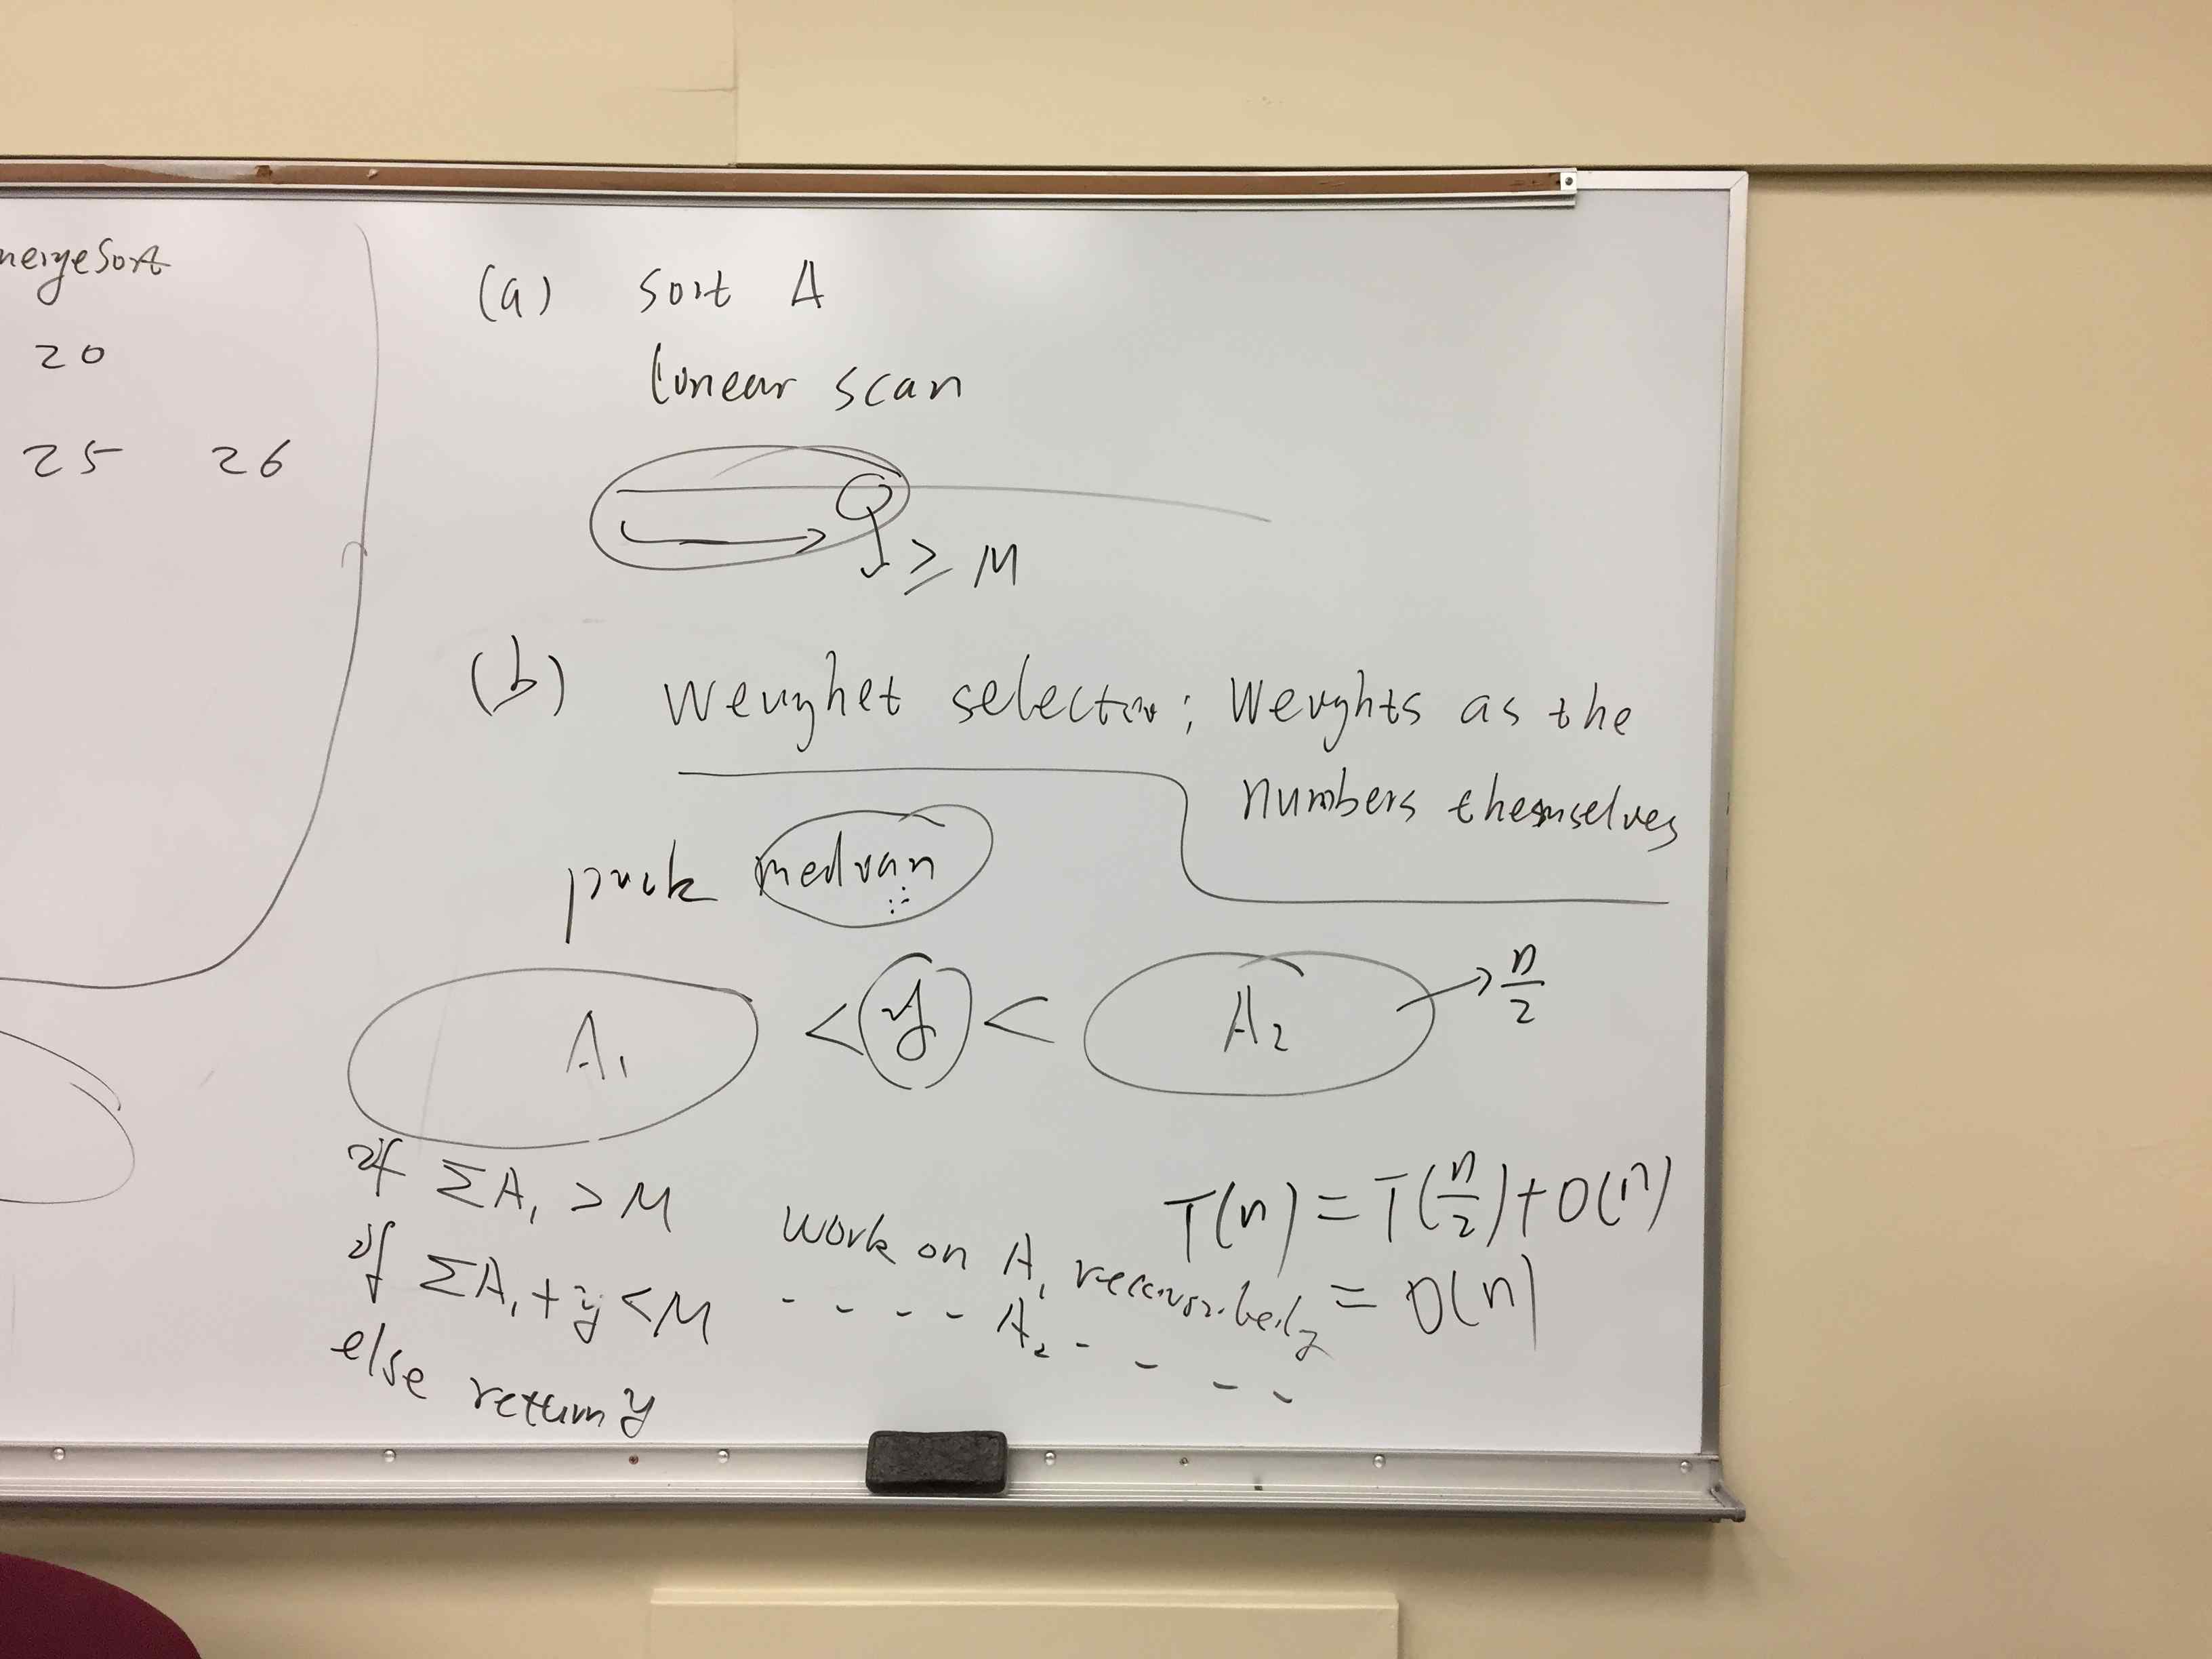 mergeSort
20
25 26
(a) Sort A
linear scan
≥ M
(b) Weighet selection; Weights as the
numbers themselves
pick median
A₁ < y < A₂ → n/2
if ΣA₁ > M work on A₁ recursively
if ΣA₁ + y < M - - - - A₂ - - - -
else return y
T(n) = T(n/2) + O(n)
= O(n)